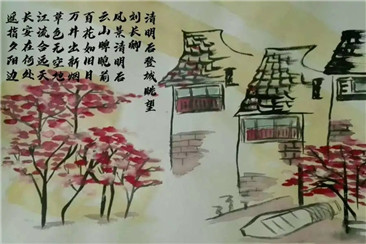 清明后登城眺望
刘长卿
风景清明后
云山睥睨前
百花如旧日
万井出新烟
草色无空地
江流合远天
长安在何处
遥指夕阳边